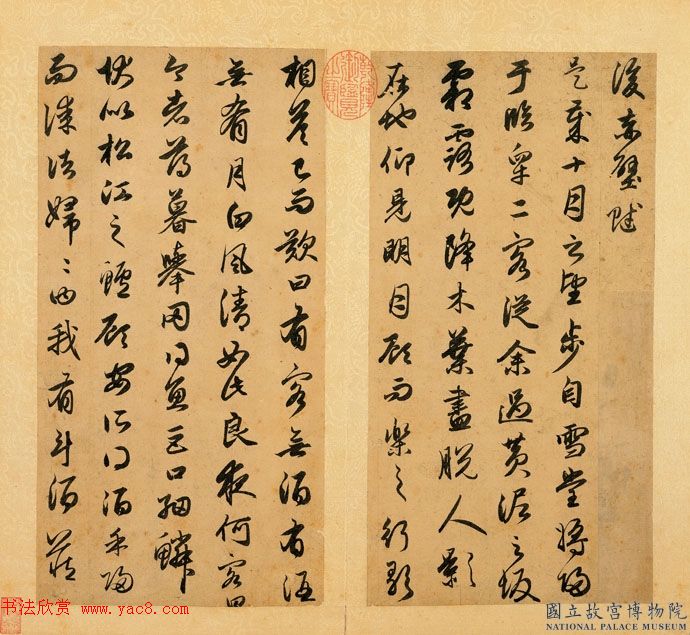 後赤壁賦
是歲十月之望步自雪堂將歸
于臨皋二客從余過黃泥之坂
霜露既降木葉盡脫人影
在地仰見明月顧而樂之行歌
相答已而歎曰有客無酒有酒
無肴月白風清如此良夜何客曰
今者薄暮舉網得魚巨口細鱗
狀似松江之鱸顧安所得酒乎歸
而謀諸婦〻曰我有斗酒藏
书法欣赏 www.yac8.com
國立故宮博物院
NATIONAL PALACE MUSEUM